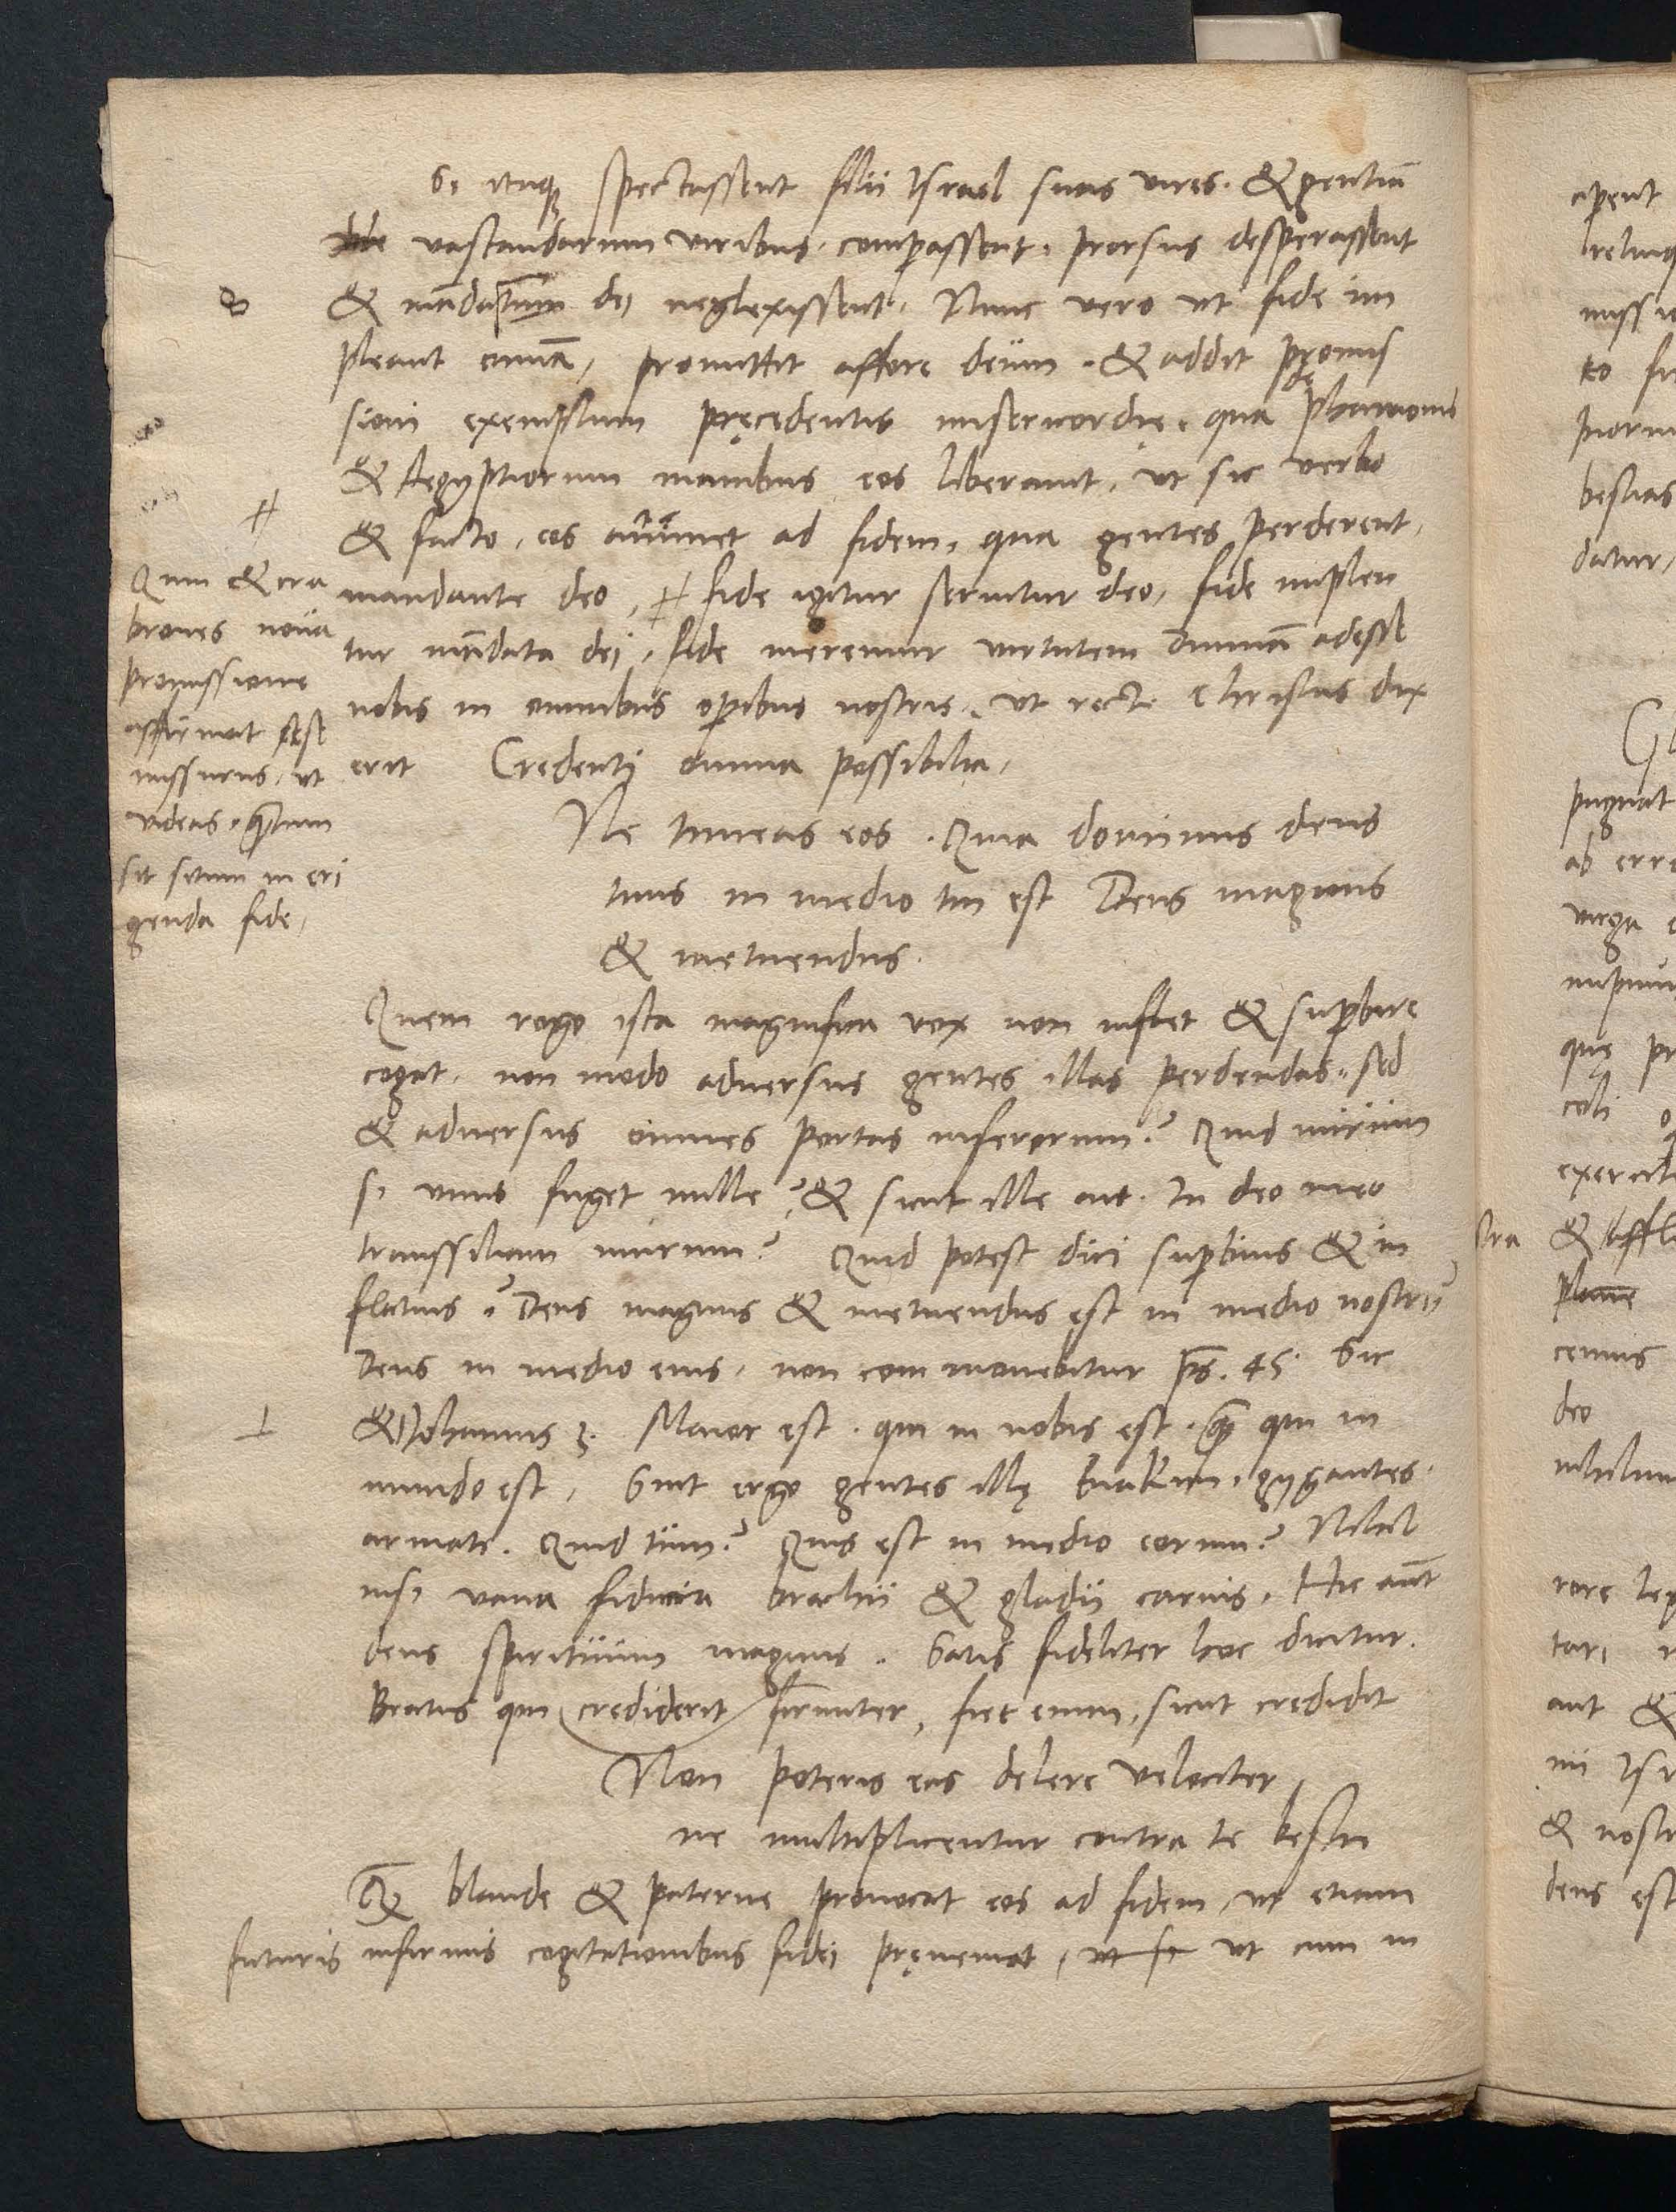 Si itaqz spectassent filii Israel suas vires. & gentiū
vastandarum viribus comparassent, prorsus desperassent
& mādatum dei neglexissent. Nunc vero ut fide im
pleant omnia, promittit affore deum. & addit promis
sioni exemplum pręcedentis misericordię, qua de pharaonis
& Aegyptiorum manibus eos liberavit, ut sic verbo
& facto, eos animet ad fidem, qua gentes perderent,
mandante deo, # fide igitur servitur deo, fide implen
tur mādata dei, fide meremur virtutem divinā adesse
nobis in omnibus operibus nostris, ut recte Christus dix
erit Credenti omnia possibilia,
#
Quin & cra
brones nova
promissione
affirmat sese
missurus, ut
videas, quantum
sit situm in eri
genda fide,
Ne timeas eos. Quia dominus deus
tuus in medio tui est Deus magnus
& metuendus.
Quem rogo ista magnifica vox non inflet & superbire
cogat, non modo adversus gentes illas perdendas, sed
& adversus omnes portas inferorum? Quid mirum
si unus fuget mille? & sicut ille ait. In deo meo
transsiliam murum? Quid potest dici superbius & in
flatius? Deus magnus & metuendus est in medio nostri,
Deus in medio eius, non commovebitur ps. 45. Sic
& Iohannes 3. Maior est. qui in nobis est. quam qui in
mundo est, Sint ergo gentes illę Enakim, gygantes.
armati. Quid tum? Quis est in medio eorum? Nihil
nisi vana fiducia brachii & gladii carnis, Hic aut
deus spirituum magnus. Satis fideliter hoc dicitur.
Beatus qui crediderit firmiter, fiet enim, sicut credidit
Non poteris eas delere velociter,
ne multiplicentur contra te bestię
Quam blande & paterne provocat eos ad fidem, ut etiam
futuris infirmis cogitationibus fidei pręveniat, ut si ut cum in